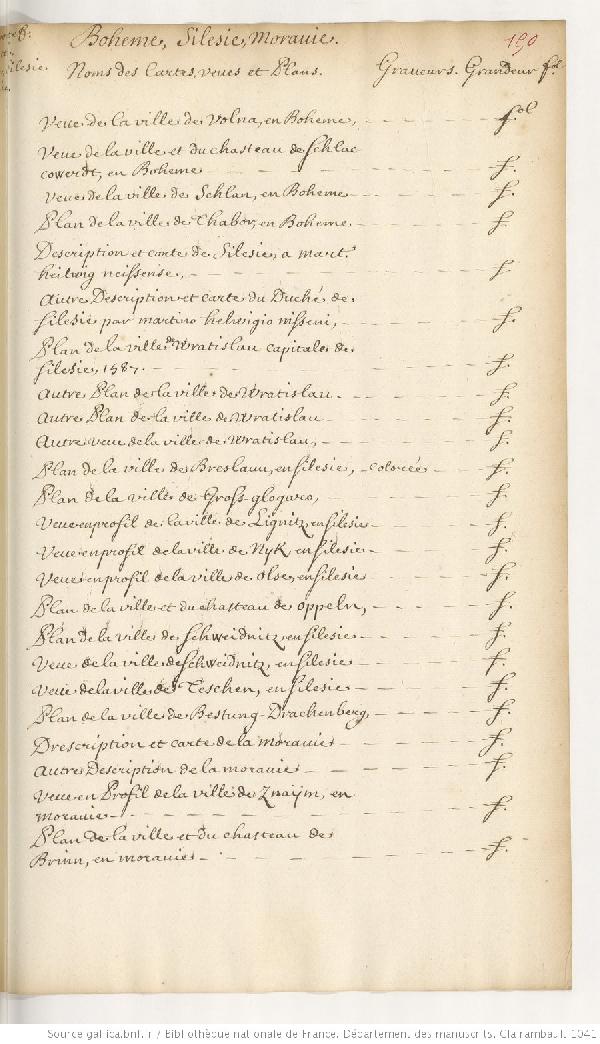 Boheme, Silesie, Moravie.
190
Noms des Cartes, veues et Plans. Graveurs. Grandeur fol.
Silesie.
Veue de la ville de Volna, en Boheme, fol
Veue de la ville et du chasteau de Schlac
cowerdt, en Boheme f.
Veue de la ville de Schlan, en Boheme f.
Plan de la ville de Thabor, en Boheme. f.
Description et carte de Silesie, a mart.
heilwig neissense, f.
Autre Description et carte du Duché de
Silesie par martino helwigio nisseni, f.
Plan de la ville de Wratislau capitale de
Silesie, 1587. f.
Autre Plan de la ville de Wratislau f.
Autre Plan de la ville de Wratislau f.
Autre veue de la ville de Wratislau, f.
Plan de la ville de Breslauu, en silesie, colorée f.
Plan de la ville de Gross-glogavo, f.
Veue en profil de la ville de Lignitz, en silesie f.
Veue en profil de la ville de Nyk en silesie f.
Veue en profil de la ville de olse, en silesie f.
Plan de la ville et du chasteau de oppeln, f.
Plan de la ville de Schweidnitz, en silesie f.
Veue de la ville de Schweidnitz, en silesie f.
Veue de la ville de Teschen, en silesie f.
Plan de la ville de Bestung-Drachenberg, f.
Drescription et carte de la moravie f.
Autre Description de la moravie f.
Veue en Profil de la ville de Znaijm, en
moravie f.
Plan de la ville et du chasteau de
Brinn, en moravie f.
Source gallica.bnf.fr / Bibliothèque nationale de France. Département des manuscrits. Clairambault 1041